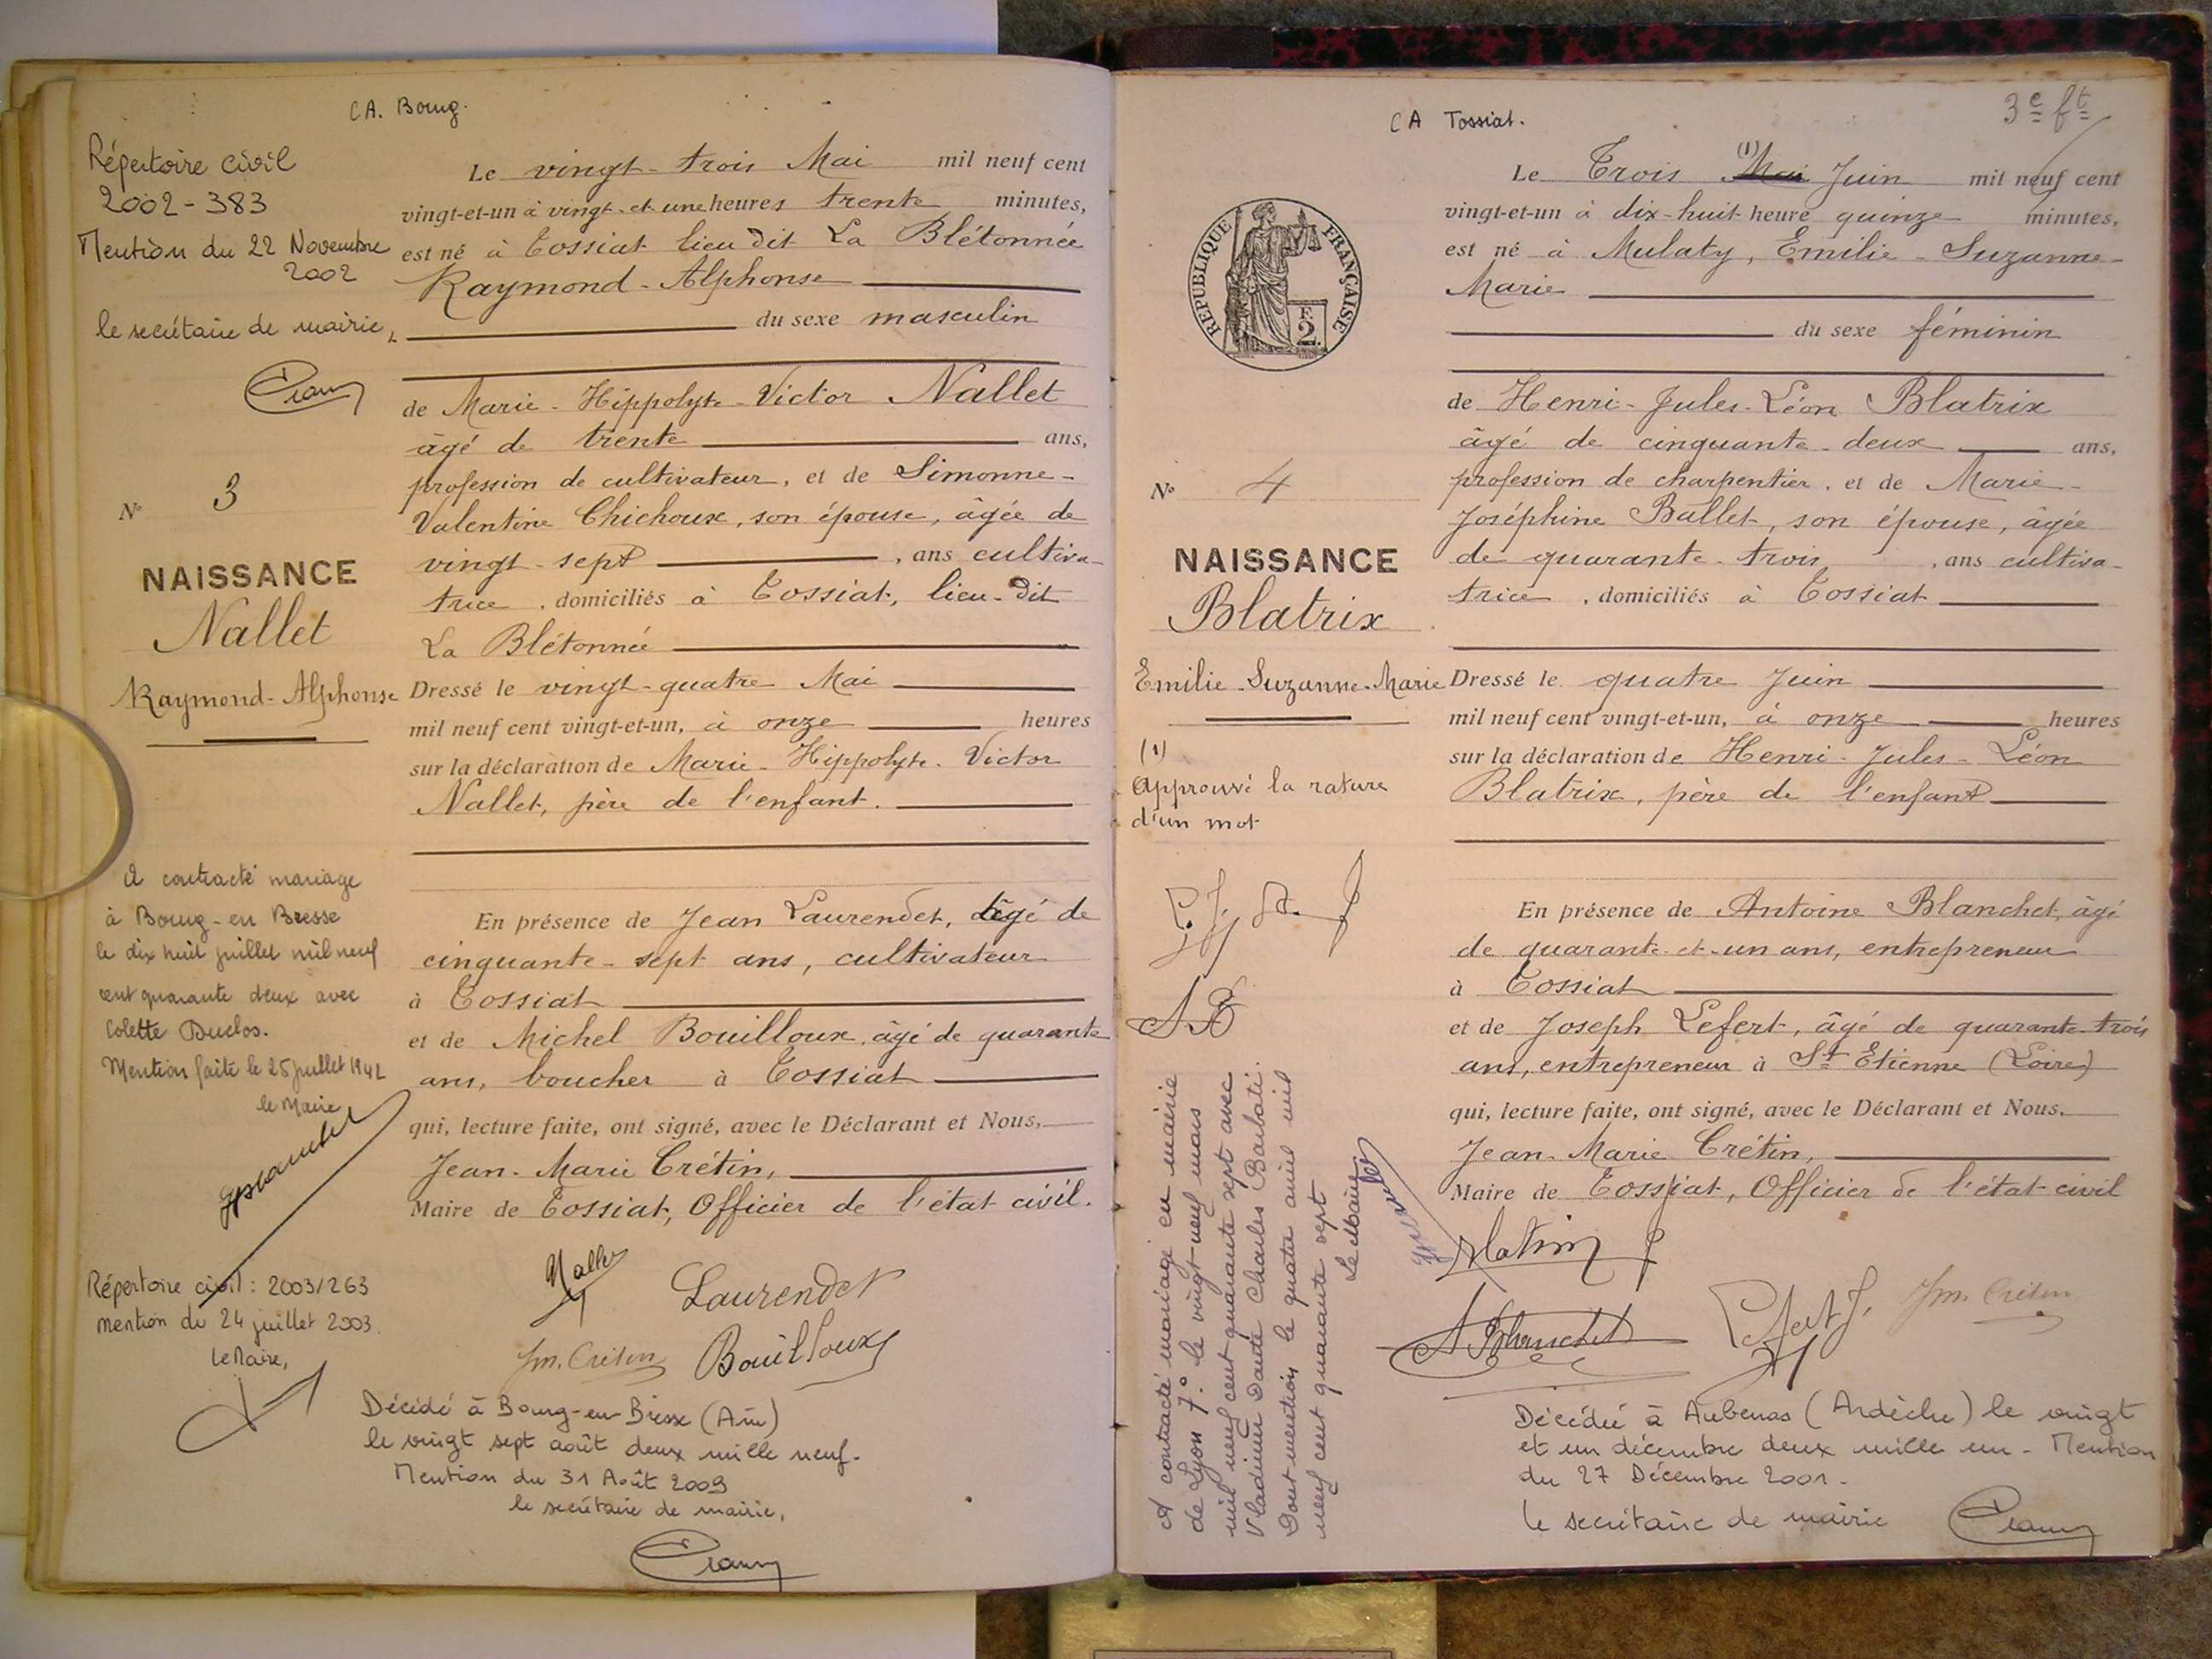 CA. Bourg.
Répertoire civil
2002 - 383
Mention du 22 Novembre
2002
le secrétaire de mairie,
N° 3
NAISSANCE
Nallet
Raymond-Alphonse
A contracté mariage
à Bourg-en Bresse
le dix huit juillet mil neuf
cent quarante deux avec
Colette Duclos.
Mention faite le 25 juillet 1942
le Maire
Répertoire civil : 2003/263
mention du 24 juillet 2003.
Le Maire,
Le vingt-trois Mai mil neuf cent
vingt-et-un à vingt-et-une heures trente minutes,
est né à Tossiat lieu dit La Blétonnée
Raymond-Alphonse
du sexe masculin
de Marie-Hippolyte-Victor Nallet
âgé de trente ans,
profession de cultivateur, et de Simonne-
Valentine Chichoux, son épouse, âgée de
vingt-sept, ans cultiva-
trice, domiciliés à Tossiat, lieu-dit
La Blétonnée
Dressé le vingt-quatre Mai
mil neuf cent vingt-et-un, à onze heures
sur la déclaration de Marie-Hippolyte-Victor
Nallet, père de l'enfant.
En présence de Jean Laurendet, âgé de
cinquante-sept ans, cultivateur
à Tossiat
et de Michel Bouilloux, âgé de quarante
ans, boucher à Tossiat
qui, lecture faite, ont signé, avec le Déclarant et Nous,
Jean-Marie Crétin,
Maire de Tossiat, Officier de l'état civil.
Nallet
Laurendet
Jm. Crétin
Bouilloux
Décédé à Bourg-en-Bresse (Ain)
le vingt sept août deux mille neuf.
Mention du 31 Août 2009
le secrétaire de mairie,
CA Tossiat.
3e ft
RÉPUBLIQUE FRANÇAISE
F. 2.
N° 4
NAISSANCE
Blatrix
Emilie-Suzanne-Marie
(1)
Approuvé la rature
d'un mot
AB
A contracté mariage en mairie
de Lyon 7° le vingt-neuf mars
mil neuf cent quarante sept avec
Vladimir Dante Charles Barbati.
Dont mention le quatre avril mil
neuf cent quarante sept
Le Maire
Le Trois (1) Mai Juin mil neuf cent
vingt-et-un à dix-huit heure quinze minutes,
est né à Mulaty, Emilie-Suzanne-
Marie
du sexe féminin
de Henri-Jules-Léon Blatrix
âgé de cinquante-deux ans,
profession de charpentier, et de Marie-
Joséphine Ballet, son épouse, âgée
de quarante-trois, ans cultiva-
trice, domiciliés à Tossiat
Dressé le quatre Juin
mil neuf cent vingt-et-un, à onze heures
sur la déclaration de Henri-Jules-Léon
Blatrix, père de l'enfant
En présence de Antoine Blanchet, âgé
de quarante-et-un ans, entrepreneur
à Tossiat
et de Joseph Lefert, âgé de quarante-trois
ans, entrepreneur à St Etienne (Loire)
qui, lecture faite, ont signé, avec le Déclarant et Nous,
Jean-Marie Crétin,
Maire de Tossiat, Officier de l'état civil
Blatrix
A Blanchet
Lefert J.
Jm. Crétin
Décédée à Aubenas (Ardèche) le vingt
et un décembre deux mille un - Mention
du 27 Décembre 2001 -
le secrétaire de mairie